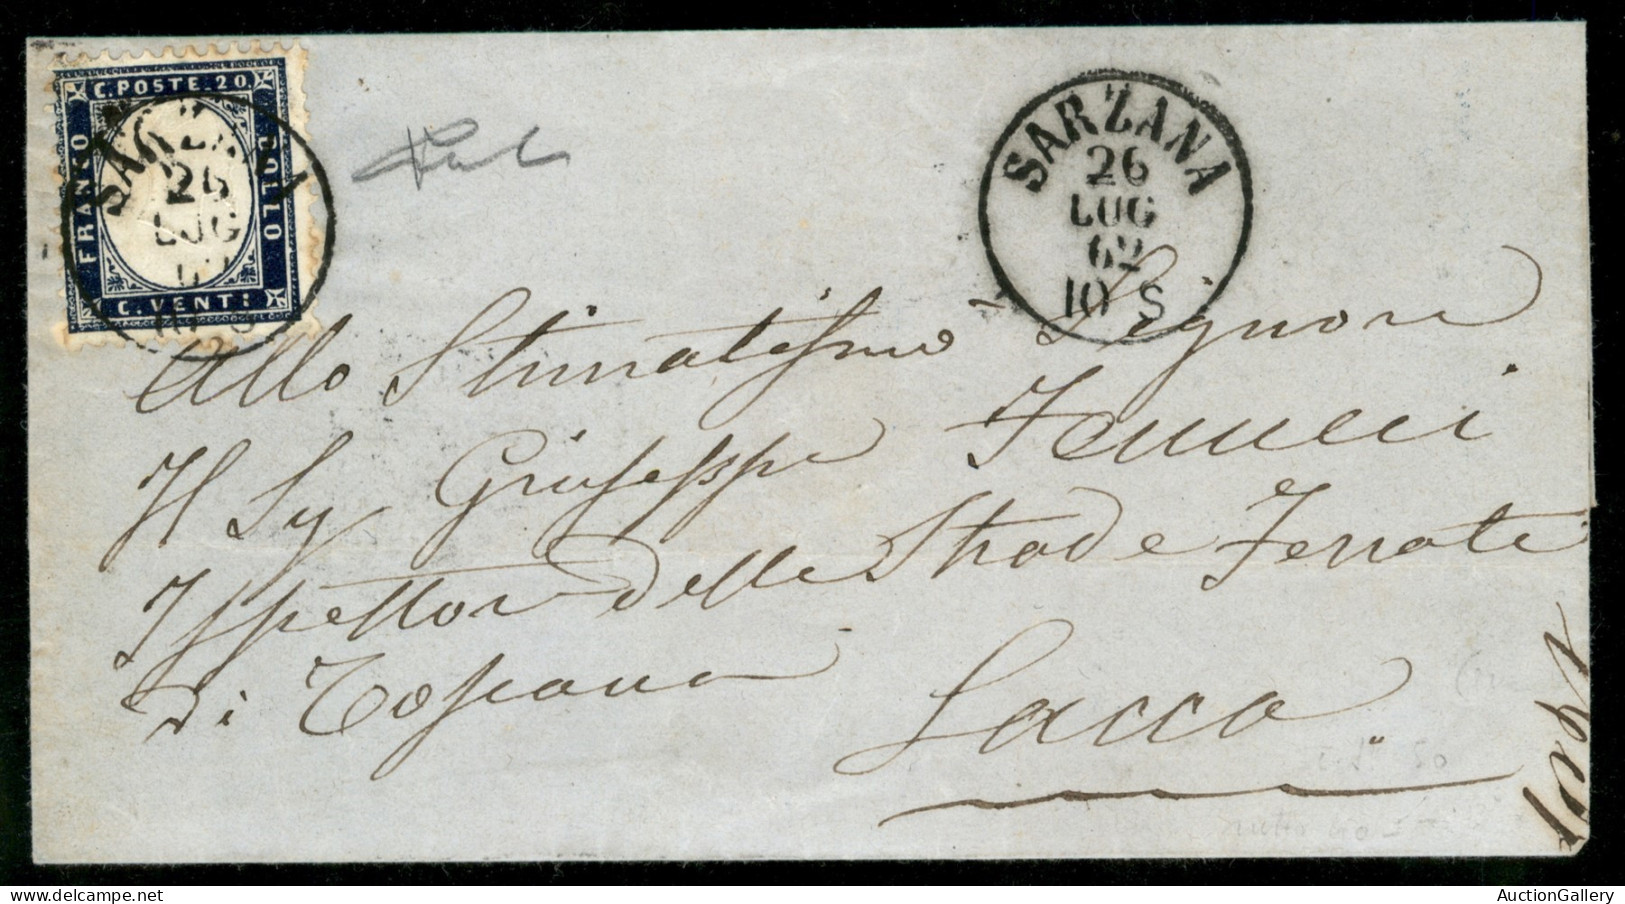 C. POSTE. 20
FRANCO
BOLLO
C. VENTI
SARZANA
26
LUG
SARZANA
26
LUG
62
10 S
Allo Stimatissimo Signore
Il Sig Giuseppe
Ispettore delle Strade Ferrate
di Toscana
Lucca
AuctionGallery